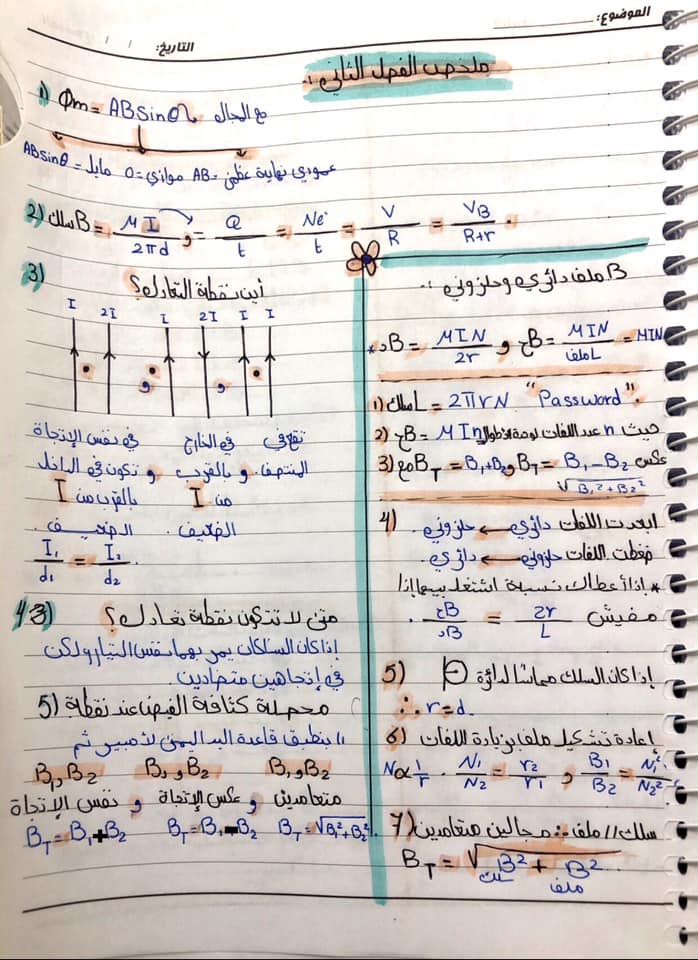 الموضوع:
التاريخ: / /
ملخص الفصل الثاني:
1) Φm = ABsinθ مع المجال
عمودي نهاية عظمى = AB موازي = 0 مايل = ABsinθ
2) B سلك = μI / 2πd و I = Q / t = Ne / t = V / R = VB / R+r .
3) أين نقطة التعادل؟
I 2I I 2I I I
تقع في في الخارج في نفس الإتجاة
المنتصف و بالقرب و تكون في الداخل
من I بالقرب من I
الضعيف . الضعيف .
I1 / d1 = I2 / d2
43) متى لا تتكون نقطة تعادل؟
إذا كان السلكان يمر بهما نفس التيار ولكن
في إتجاهين متضادين.
5) محصلة كثافة الفيض عند نقطة
بنطبق قاعدة اليد اليمنى لأمبير ثم
B1 و B2 B1 و B2 B1, B2
متعامدين و عكس الإتجاة و نفس الإتجاة
BT = √B1²+B2². BT = B1 - B2 BT = B1 + B2
B ملف دائري وحلزوني :-
* B د = μIN / 2r و B ح = μIN / L ملف = μIN
1) L سلك = 2πrN "Password".
2) B ح = μIn حيث n عدد اللفات لوحدة الأطوال
3) مع BT = B1+B2 و BT = B1-B2 عكس
√B1²+B2²
4) ابعدت اللفات دائري ← حلزوني.
ضغطت اللفات حلزوني ← دائري.
* إذا أعطاك نسبة اشتغل بيها إذا
مفيش 2r / L = B ح / B د .
5) إذا كان السلك مماسًا لدائرة
∴ r = d.
6) إعادة تشكيل ملف بزيادة اللفات
N α 1/r . N1/N2 = r2/r1 و B1/B2 = N1²/N2²
7) سلك // ملف ∴ مجالين متعامدين
BT = √B² سلك + B² ملف